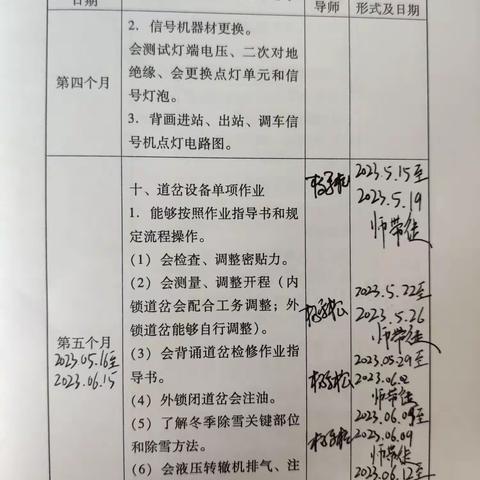 日期
导师
形式及日期
第四个月
2．信号机器材更换。
会测试灯端电压、二次对地
绝缘、会更换点灯单元和信
号灯泡。
3．背画进站、出站、调车信
号机点灯电路图。
第五个月
2023.05.16至
2023.06.15
十、道岔设备单项作业
1．能够按照作业指导书和规
定流程操作。
（1）会检查、调整密贴力。
（2）会测量、调整开程（内
锁道岔会配合工务调整；外
锁道岔能够自行调整）。
（3）会背诵道岔检修作业指
导书。
（4）外锁闭道岔会注油。
（5）了解冬季除雪关键部位
和除雪方法。
（6）会液压转辙机排气、注
2023.5.15至
2023.5.19
师带徒
2023.5.22至
2023.5.26
师带徒
2023.05.29至
2023.06.02
师带徒
2023.06.05至
2023.06.09
师带徒
2023.06.12至